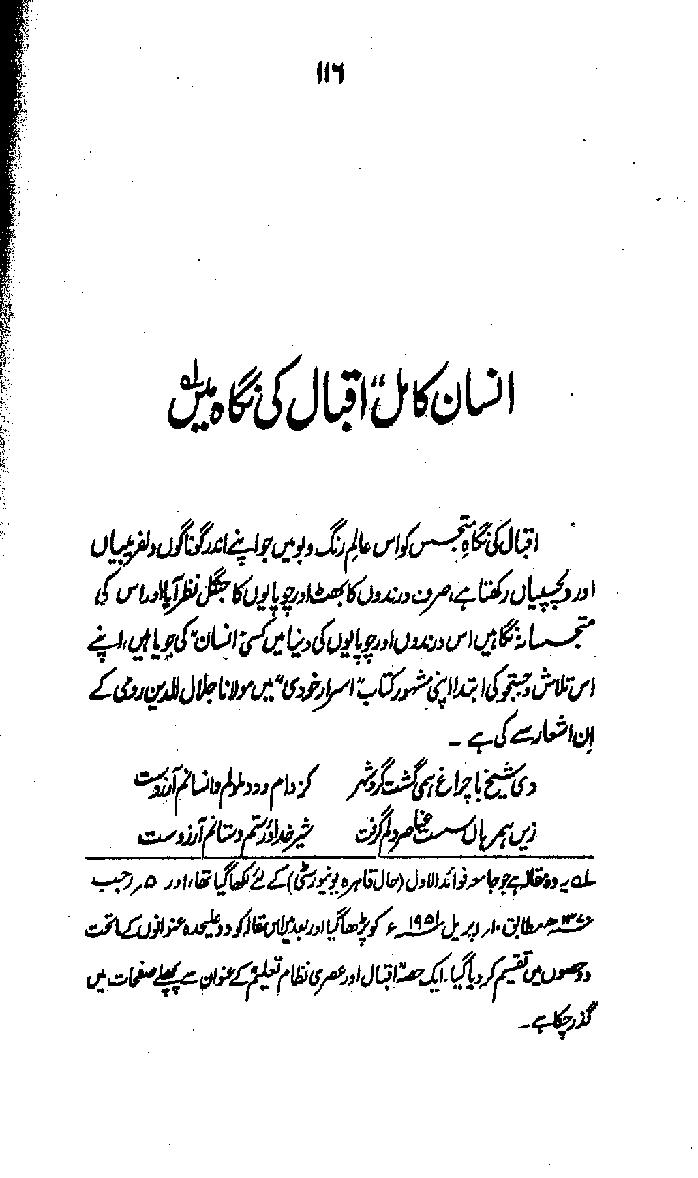 ۱۱۶
انسان کامل "اقبال کی نگاہ میں لہ
اقبال کی نگاہِ متجسس کو اس عالمِ رنگ و بو میں جو اپنے اندر گوناگوں دلفریبیاں
اور دلچسپیاں رکھتا ہے، صرف درندوں کا بھٹ اور چوپایوں کا جنگل نظر آیا، اور اس کی
متجسسانہ نگاہیں اس درندوں اور چوپایوں کی دنیا میں کسی "انسان" کی جویا ہیں، اپنے
اس تلاش و جستجو کی ابتدا اپنی مشہور کتاب "اسرار خودی" میں مولانا جلال الدین رومی کے
اِن اشعار سے کی ہے۔
دی شیخ با چراغ ہمی گشت گردِ شہر کز دام و دد ملولم و انسانم آرزوست
زیں ہمرہان سست عناصر دلم گرفت شیرِ خدا و رستم دستانم آرزوست
لہ یہ وہ مقالہ ہے جو جامعہ فوائد الاول (حال قاہرہ یونیورسٹی) کے لئے لکھا گیا تھا، اور ۵ رجب
۱۳۷۰ھ مطابق ۱۰ اپریل ۱۹۵۱ء کو پڑھا گیا اور بعد میں اس مقالہ کو دو علیحدہ عنوانوں کے ماتحت
دو حصوں میں تقسیم کر دیا گیا۔ ایک حصہ "اقبال اور عصری نظام تعلیم" کے عنوان سے پچھلے صفحات میں
گذر چکا ہے۔